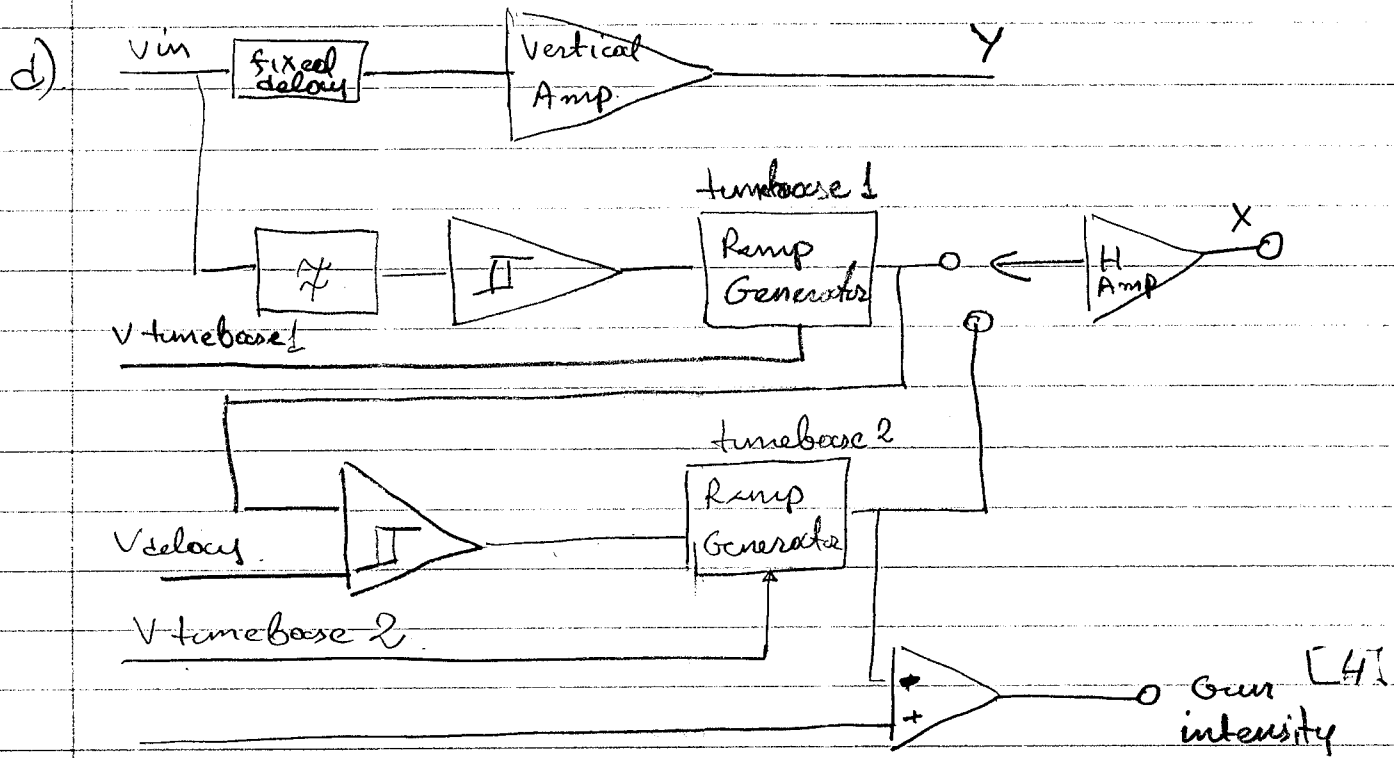 d)
Vin
fixed
delay
Vertical
Amp.
Y
timebase 1
Ramp
Generator
H
Amp
X
V timebase 1
timebase 2
Ramp
Generator
V delay
V timebase 2
[4]
+
+
Gun
intensity